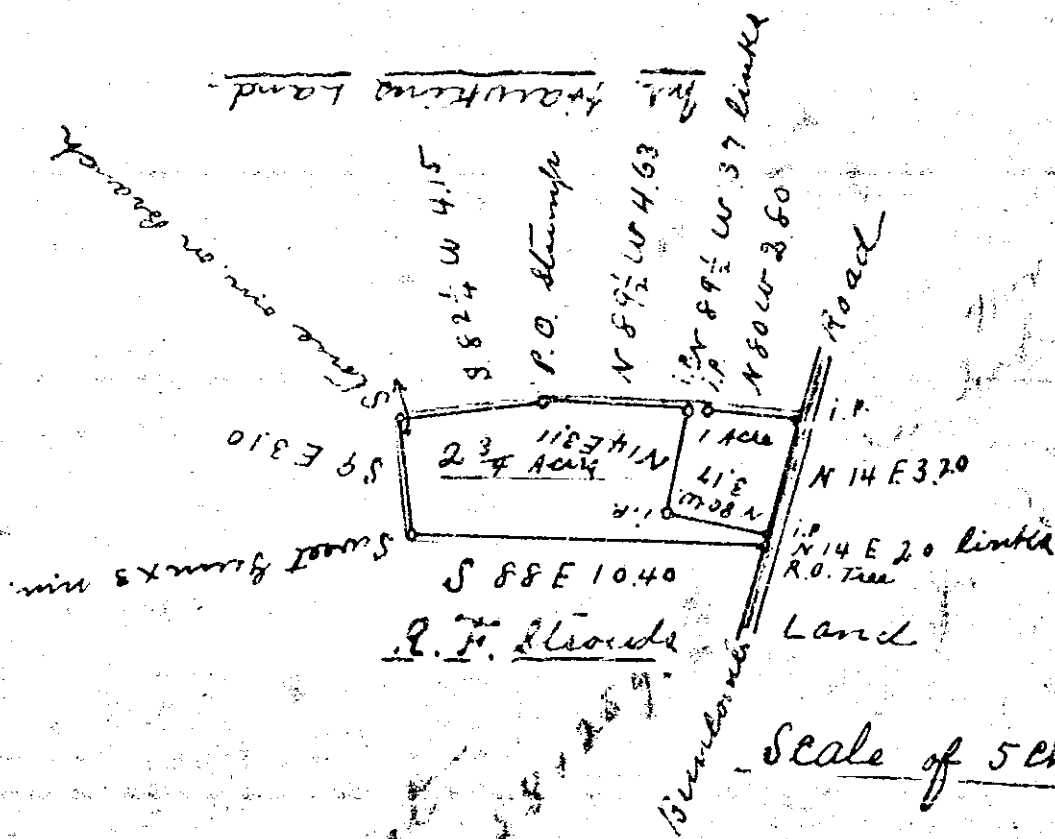 Hawkins Land.
Stone on Branch
S 82 1/4 W 4.15
P.O. Stump
N 89 1/2 W 4.63
i.P.
N 89 1/2 W 37 links
i.P.
N 80 W 2.80
Road
i.P.
S 9 E 3.10
2 3/4 Acres
N 14 E 3.11
1 Acre
N 80 W.
3.17
i.P.
N 14 E 3.20
i.P.
N 14 E 20 links
R.O. Tree
Sweet Gum x 3 nm.
S 88 E 10.40
R. F. Strouds
Land
Buncombe
Scale of 5 Ch